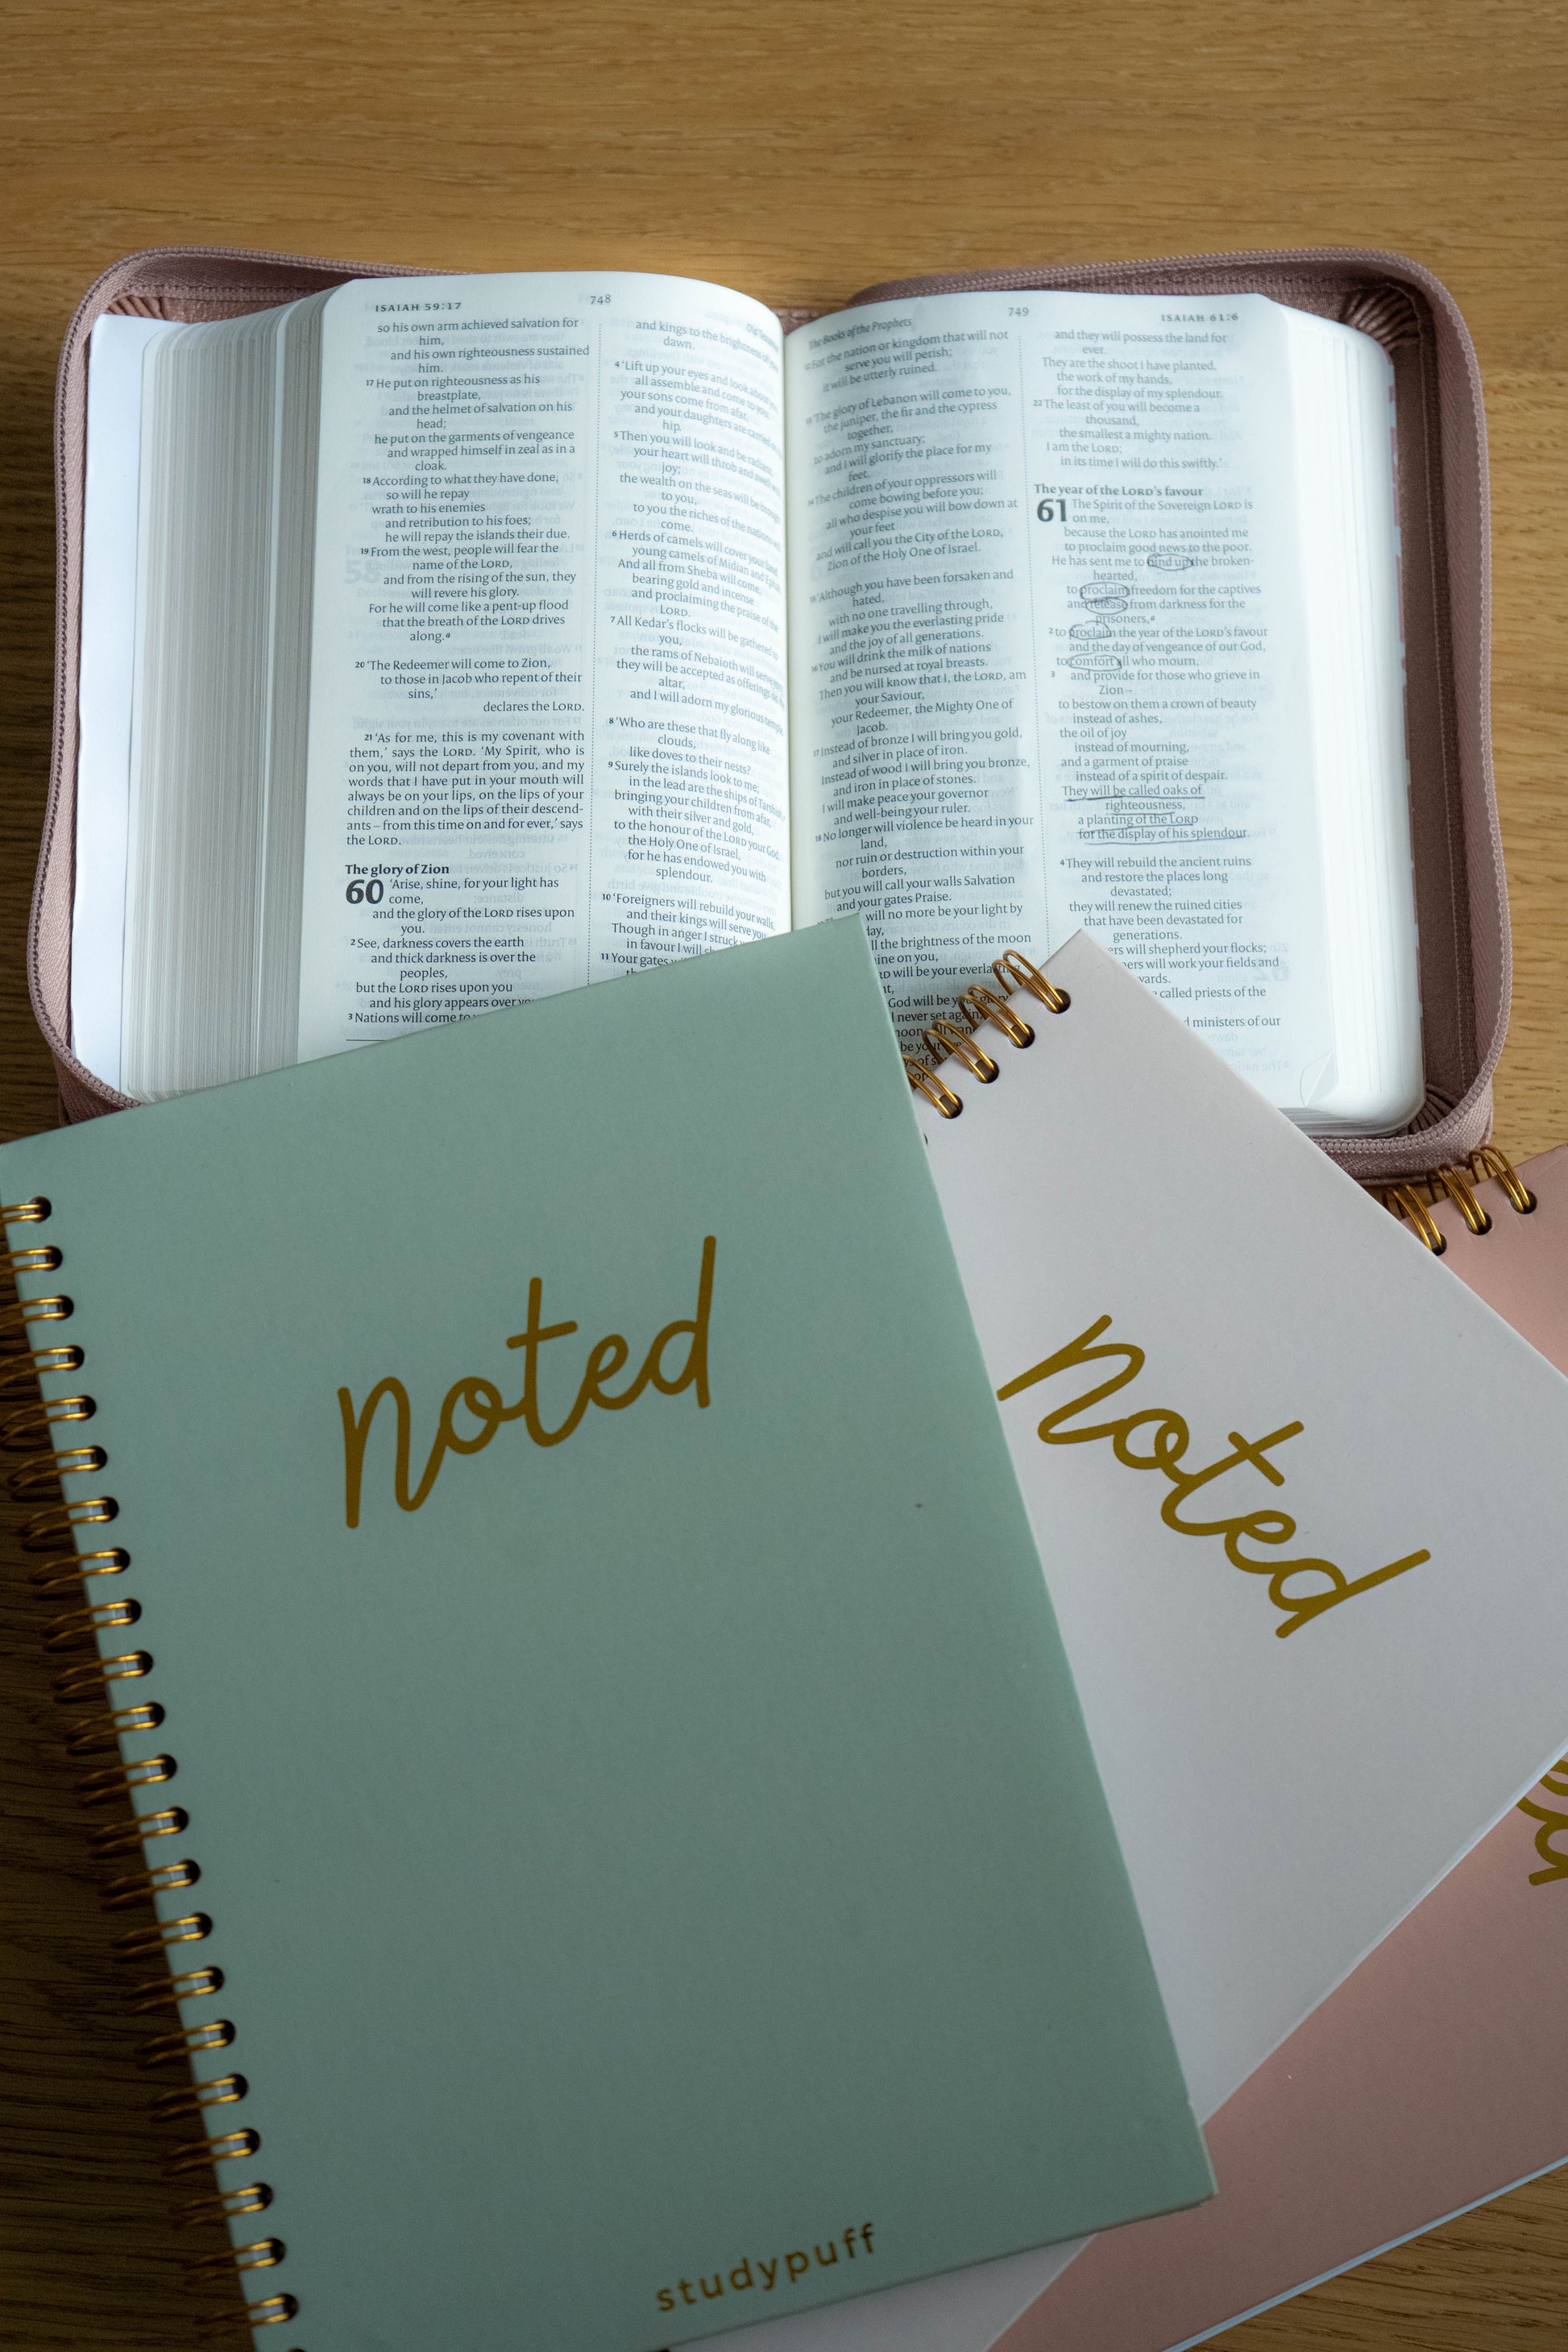 ISAIAH 59:17
748
so his own arm achieved salvation for
him,
and his own righteousness sustained
him.
17 He put on righteousness as his
breastplate,
and the helmet of salvation on his
head;
he put on the garments of vengeance
and wrapped himself in zeal as in a
cloak.
18 According to what they have done,
so will he repay
wrath to his enemies
and retribution to his foes;
he will repay the islands their due.
19 From the west, people will fear the
name of the LORD,
and from the rising of the sun, they
will revere his glory.
For he will come like a pent-up flood
that the breath of the LORD drives
along.a
20 ‘The Redeemer will come to Zion,
to those in Jacob who repent of their
sins,’
declares the LORD.
21 ‘As for me, this is my covenant with
them,’ says the LORD. ‘My Spirit, who is
on you, will not depart from you, and my
words that I have put in your mouth will
always be on your lips, on the lips of your
children and on the lips of their descend-
ants – from this time on and for ever,’ says
the LORD.
The glory of Zion
60 ‘Arise, shine, for your light has
come,
and the glory of the LORD rises upon
you.
2 See, darkness covers the earth
and thick darkness is over the
peoples,
but the LORD rises upon you
and his glory appears over
3 Nations will come to
and kings to the brightness of
dawn.
4 ‘Lift up your eyes and look about
all assemble and come to you;
your sons come from afar,
and your daughters are carried
hip.
5 Then you will look and be radiant,
your heart will throb and swell
joy;
the wealth on the seas will be brought
to you,
to you the riches of the nations will
come.
6 Herds of camels will cover your land,
young camels of Midian and
And all from Sheba will come,
bearing gold and incense
and proclaiming the praise of the
LORD.
7 All Kedar’s flocks will be gathered to
you,
the rams of Nebaioth will serve
they will be accepted as offerings on
altar,
and I will adorn my glorious temple.
8 ‘Who are these that fly along like
clouds,
like doves to their nests?
9 Surely the islands look to me;
in the lead are the ships of
bringing your children from afar,
with their silver and gold,
to the honour of the LORD your God,
the Holy One of Israel,
for he has endowed you with
splendour.
10 ‘Foreigners will rebuild your walls,
and their kings will serve you.
Though in anger I struck
in favour I will
11 Your gates
The Books of the Prophets
749
ISAIAH 61:6
For the nation or kingdom that will not
serve you will perish;
it will be utterly ruined.
‘The glory of Lebanon will come to you,
the juniper, the fir and the cypress
together,
to adorn my sanctuary;
and I will glorify the place for my
feet.
The children of your oppressors will
come bowing before you;
all who despise you will bow down at
your feet
and will call you the City of the LORD,
Zion of the Holy One of Israel.
‘Although you have been forsaken and
hated,
with no one travelling through,
I will make you the everlasting pride
and the joy of all generations.
16 You will drink the milk of nations
and be nursed at royal breasts.
Then you will know that I, the LORD, am
your Saviour,
your Redeemer, the Mighty One of
Jacob.
17 Instead of bronze I will bring you gold,
and silver in place of iron.
Instead of wood I will bring you bronze,
and iron in place of stones.
I will make peace your governor
and well-being your ruler.
18 No longer will violence be heard in your
land,
nor ruin or destruction within your
borders,
but you will call your walls Salvation
and your gates Praise.
will no more be your light by
day,
the brightness of the moon
on you,
will be your everlasting
God will be your glory
never set again,
and they will possess the land for
ever.
They are the shoot I have planted,
the work of my hands,
for the display of my splendour.
22 The least of you will become a
thousand,
the smallest a mighty nation.
I am the LORD;
in its time I will do this swiftly.’
The year of the LORD’s favour
61 The Spirit of the Sovereign LORD is
on me,
because the LORD has anointed me
to proclaim good news to the poor.
He has sent me to bind up the broken-
hearted,
to proclaim freedom for the captives
and release from darkness for the
prisoners,a
2 to proclaim the year of the LORD’s favour
and the day of vengeance of our God,
to comfort all who mourn,
3 and provide for those who grieve in
Zion –
to bestow on them a crown of beauty
instead of ashes,
the oil of joy
instead of mourning,
and a garment of praise
instead of a spirit of despair.
They will be called oaks of
righteousness,
a planting of the LORD
for the display of his splendour.
4 They will rebuild the ancient ruins
and restore the places long
devastated;
they will renew the ruined cities
that have been devastated for
generations.
will shepherd your flocks;
will work your fields and
called priests of the
ministers of our
noted
noted
studypuff